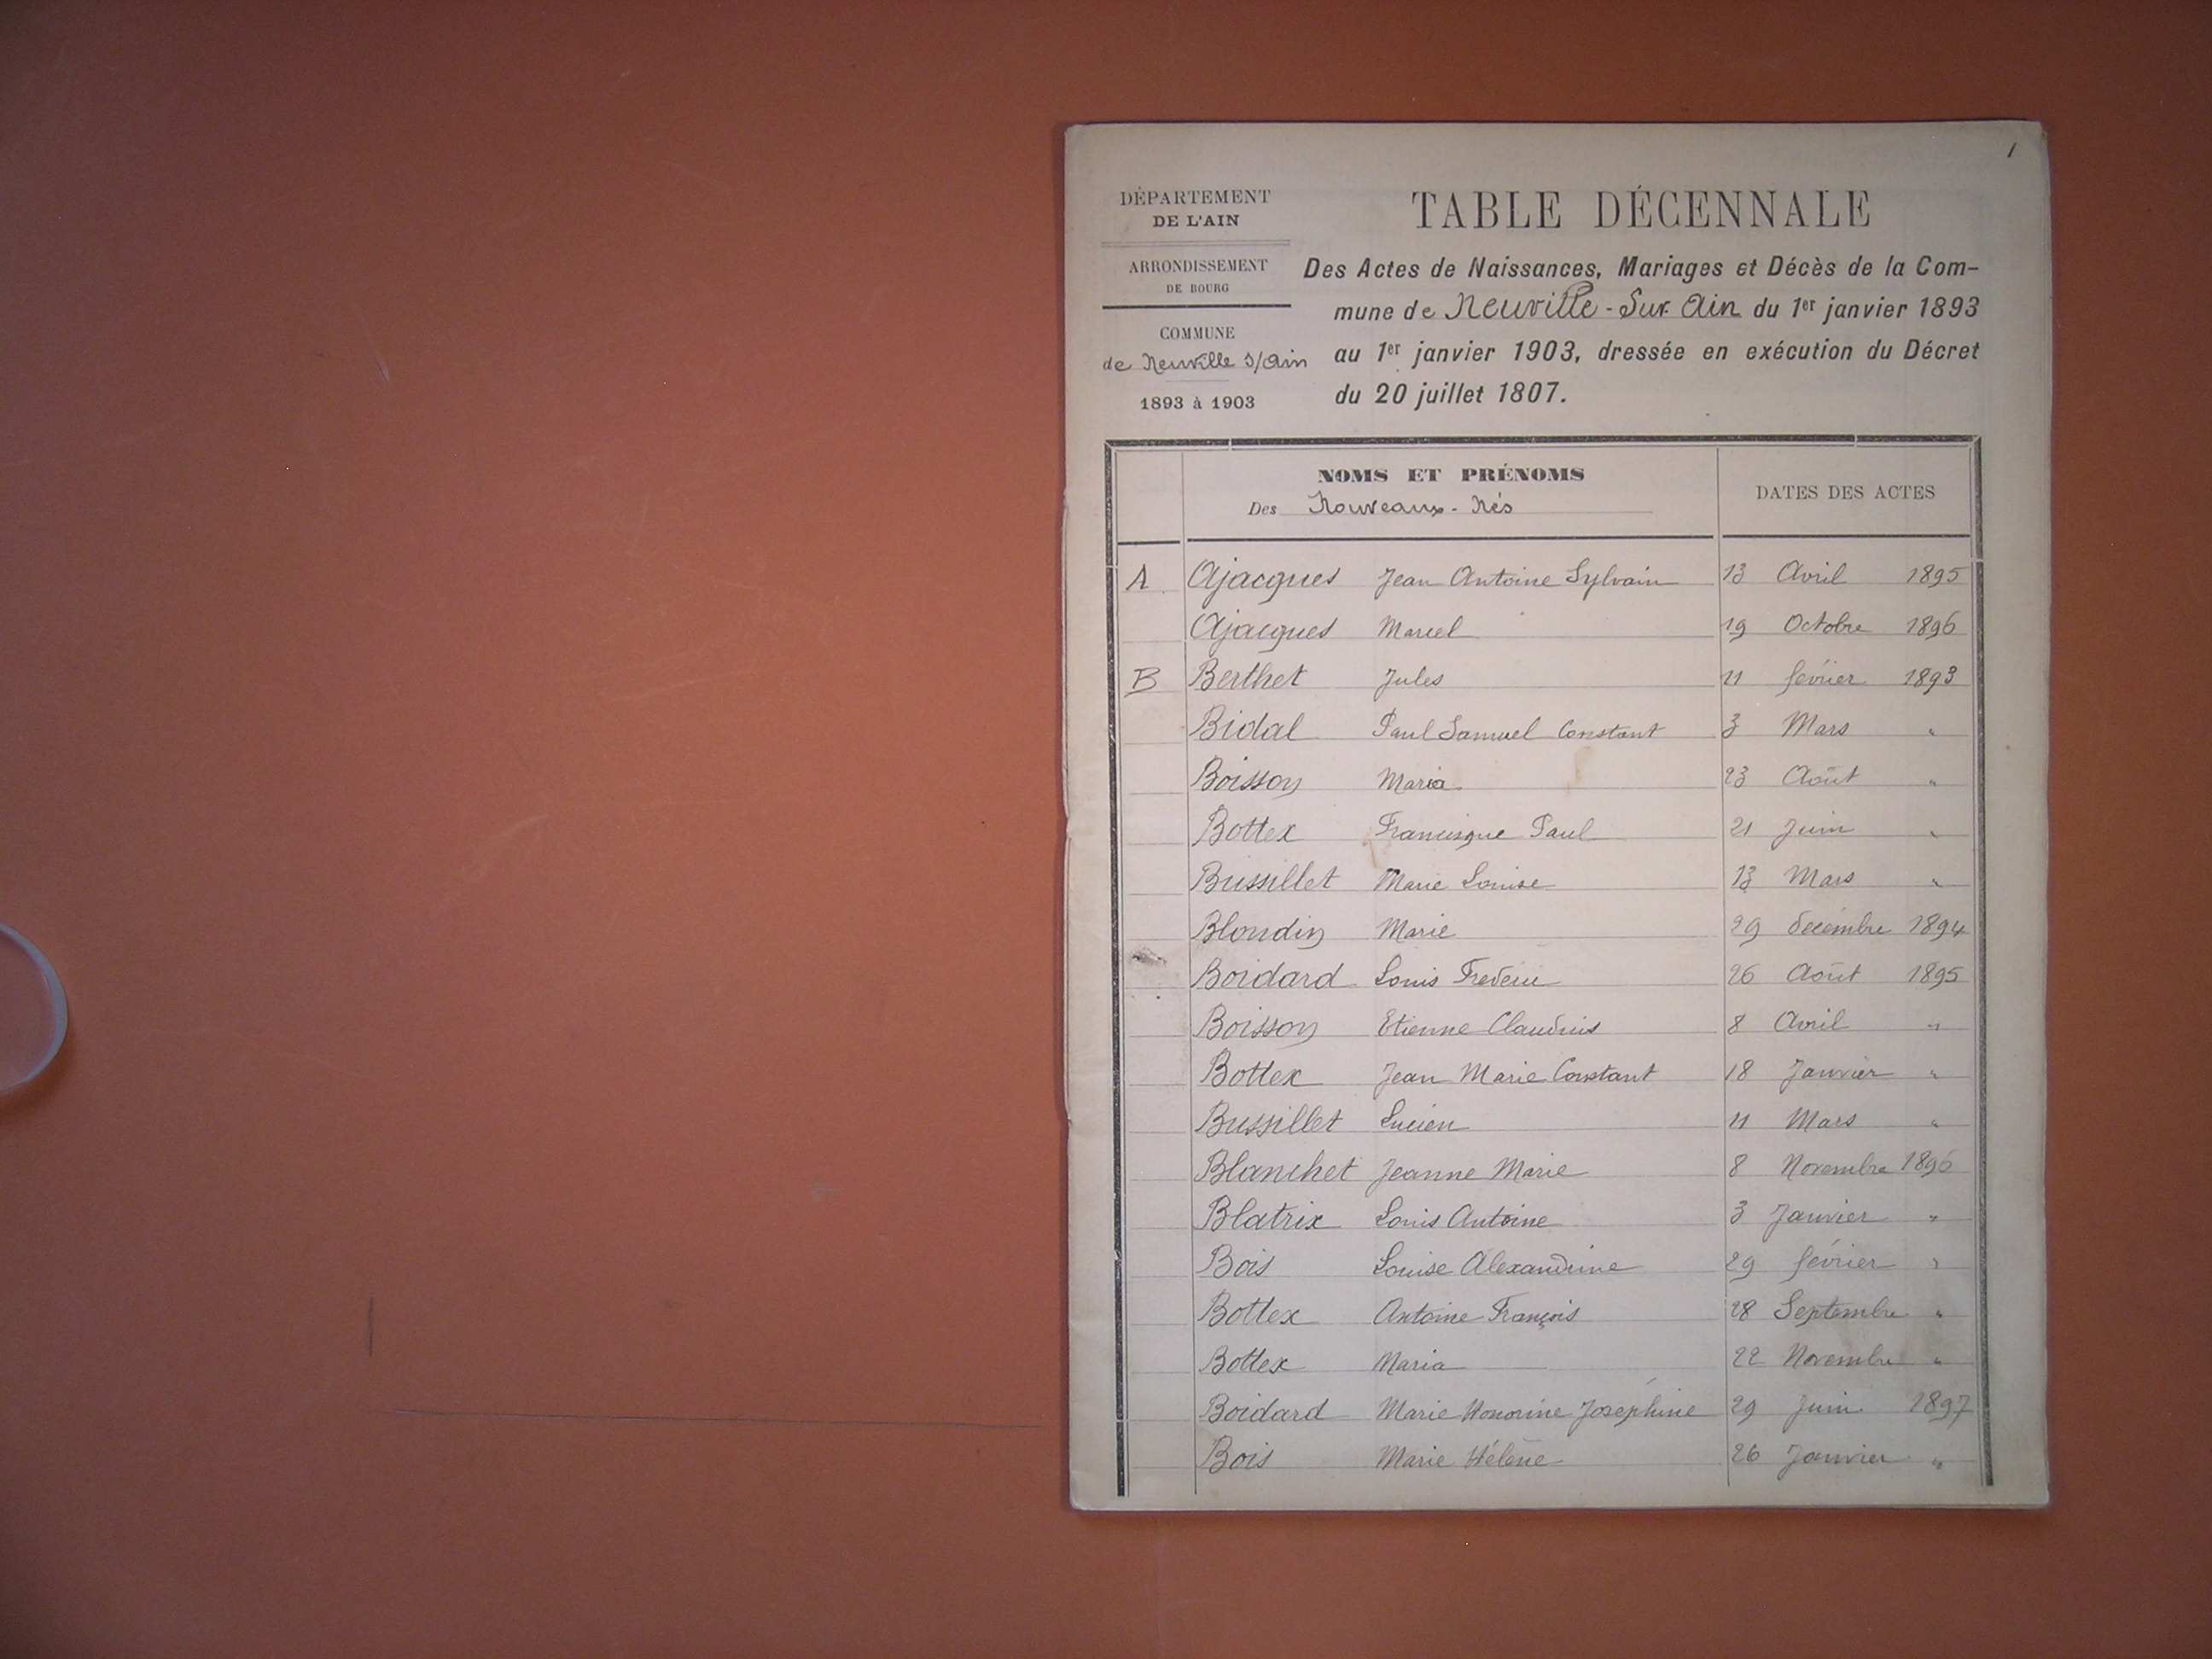 1
DÉPARTEMENT
DE L'AIN
ARRONDISSEMENT
DE BOURG
COMMUNE
de Neuville s/Ain
1893 à 1903
TABLE DÉCENNALE
Des Actes de Naissances, Mariages et Décès de la Com-
mune de Neuville-Sur Ain du 1er janvier 1893
au 1er janvier 1903, dressée en exécution du Décret
du 20 juillet 1807.
NOMS ET PRÉNOMS
Des Nouveaux-Nés
DATES DES ACTES
A Ajacques Jean Antoine Sylvain 13 Avril 1895
Ajacques Marcel 19 Octobre 1896
B Berthet Jules 11 février 1893
Bidal Paul Samuel Constant 3 Mars "
Boisson Maria 23 Août "
Bottex Francisque Paul 21 Juin "
Bussillet Marie Louise 13 Mars "
Blondin Marie 29 décembre 1894
Boidard Louis Frédéric 26 Août 1895
Boisson Etienne Claudius 8 Avril "
Bottex Jean Marie Constant 18 Janvier "
Bussillet Lucien 11 Mars "
Blanchet Jeanne Marie 8 Novembre 1896
Blatrix Louis Antoine 3 Janvier "
Bois Louise Alexandrine 29 février "
Bottex Antoine François 28 Septembre "
Bottex Maria 22 Novembre "
Boidard Marie Honorine Joséphine 29 Juin 1897
Bois Marie Hélène 26 Janvier "